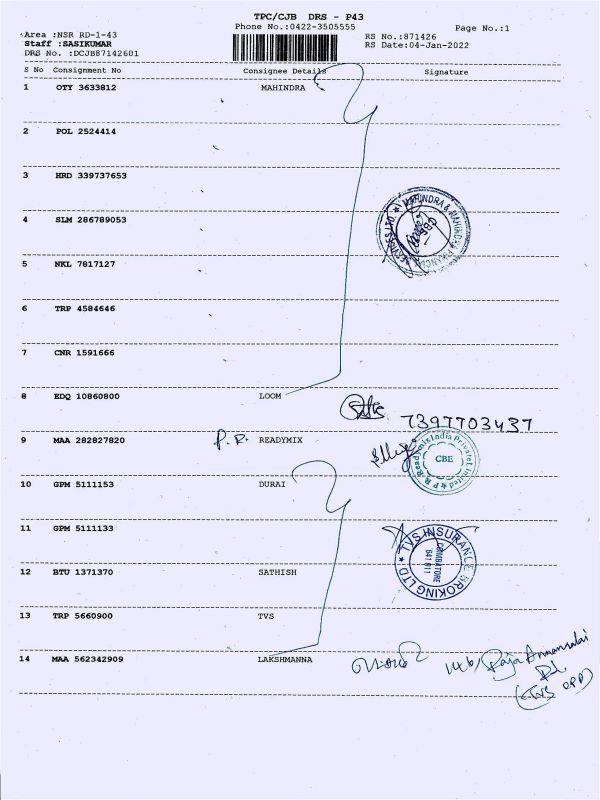 TPC/CJB DRS - P43
Phone No.:0422-3505555
Page No.:1
Area :NSR RD-1-43
RS No.:871426
Staff :SASIKUMAR
RS Date:04-Jan-2022
DRS No. :DCJB87142601
S No Consignment No Consignee Details Signature
1 OTY 3633812 MAHINDRA
2 POL 2524414
3 HRD 339737653
MAHINDRA & MAHINDRA FINANCIAL SERVICES LTD.
CBE
4 SLM 286789053
5 NKL 7817127
6 TRP 4584646
7 CNR 1591666
8 EDQ 10860800 LOOM
7397703437
9 MAA 282827820 P.R. READYMIX
P R Readymix India Private Limited
CBE
10 GPM 5111153 DURAI
11 GPM 5111133
TVS INSURANCE BROKING LTD
COIMBATORE
641 011
12 BTU 1371370 SATHISH
13 TRP 5660900 TVS
14 MAA 562342909 LAKSHMANNA
146, Raja Annamalai
Rd.
(TVS OPP)